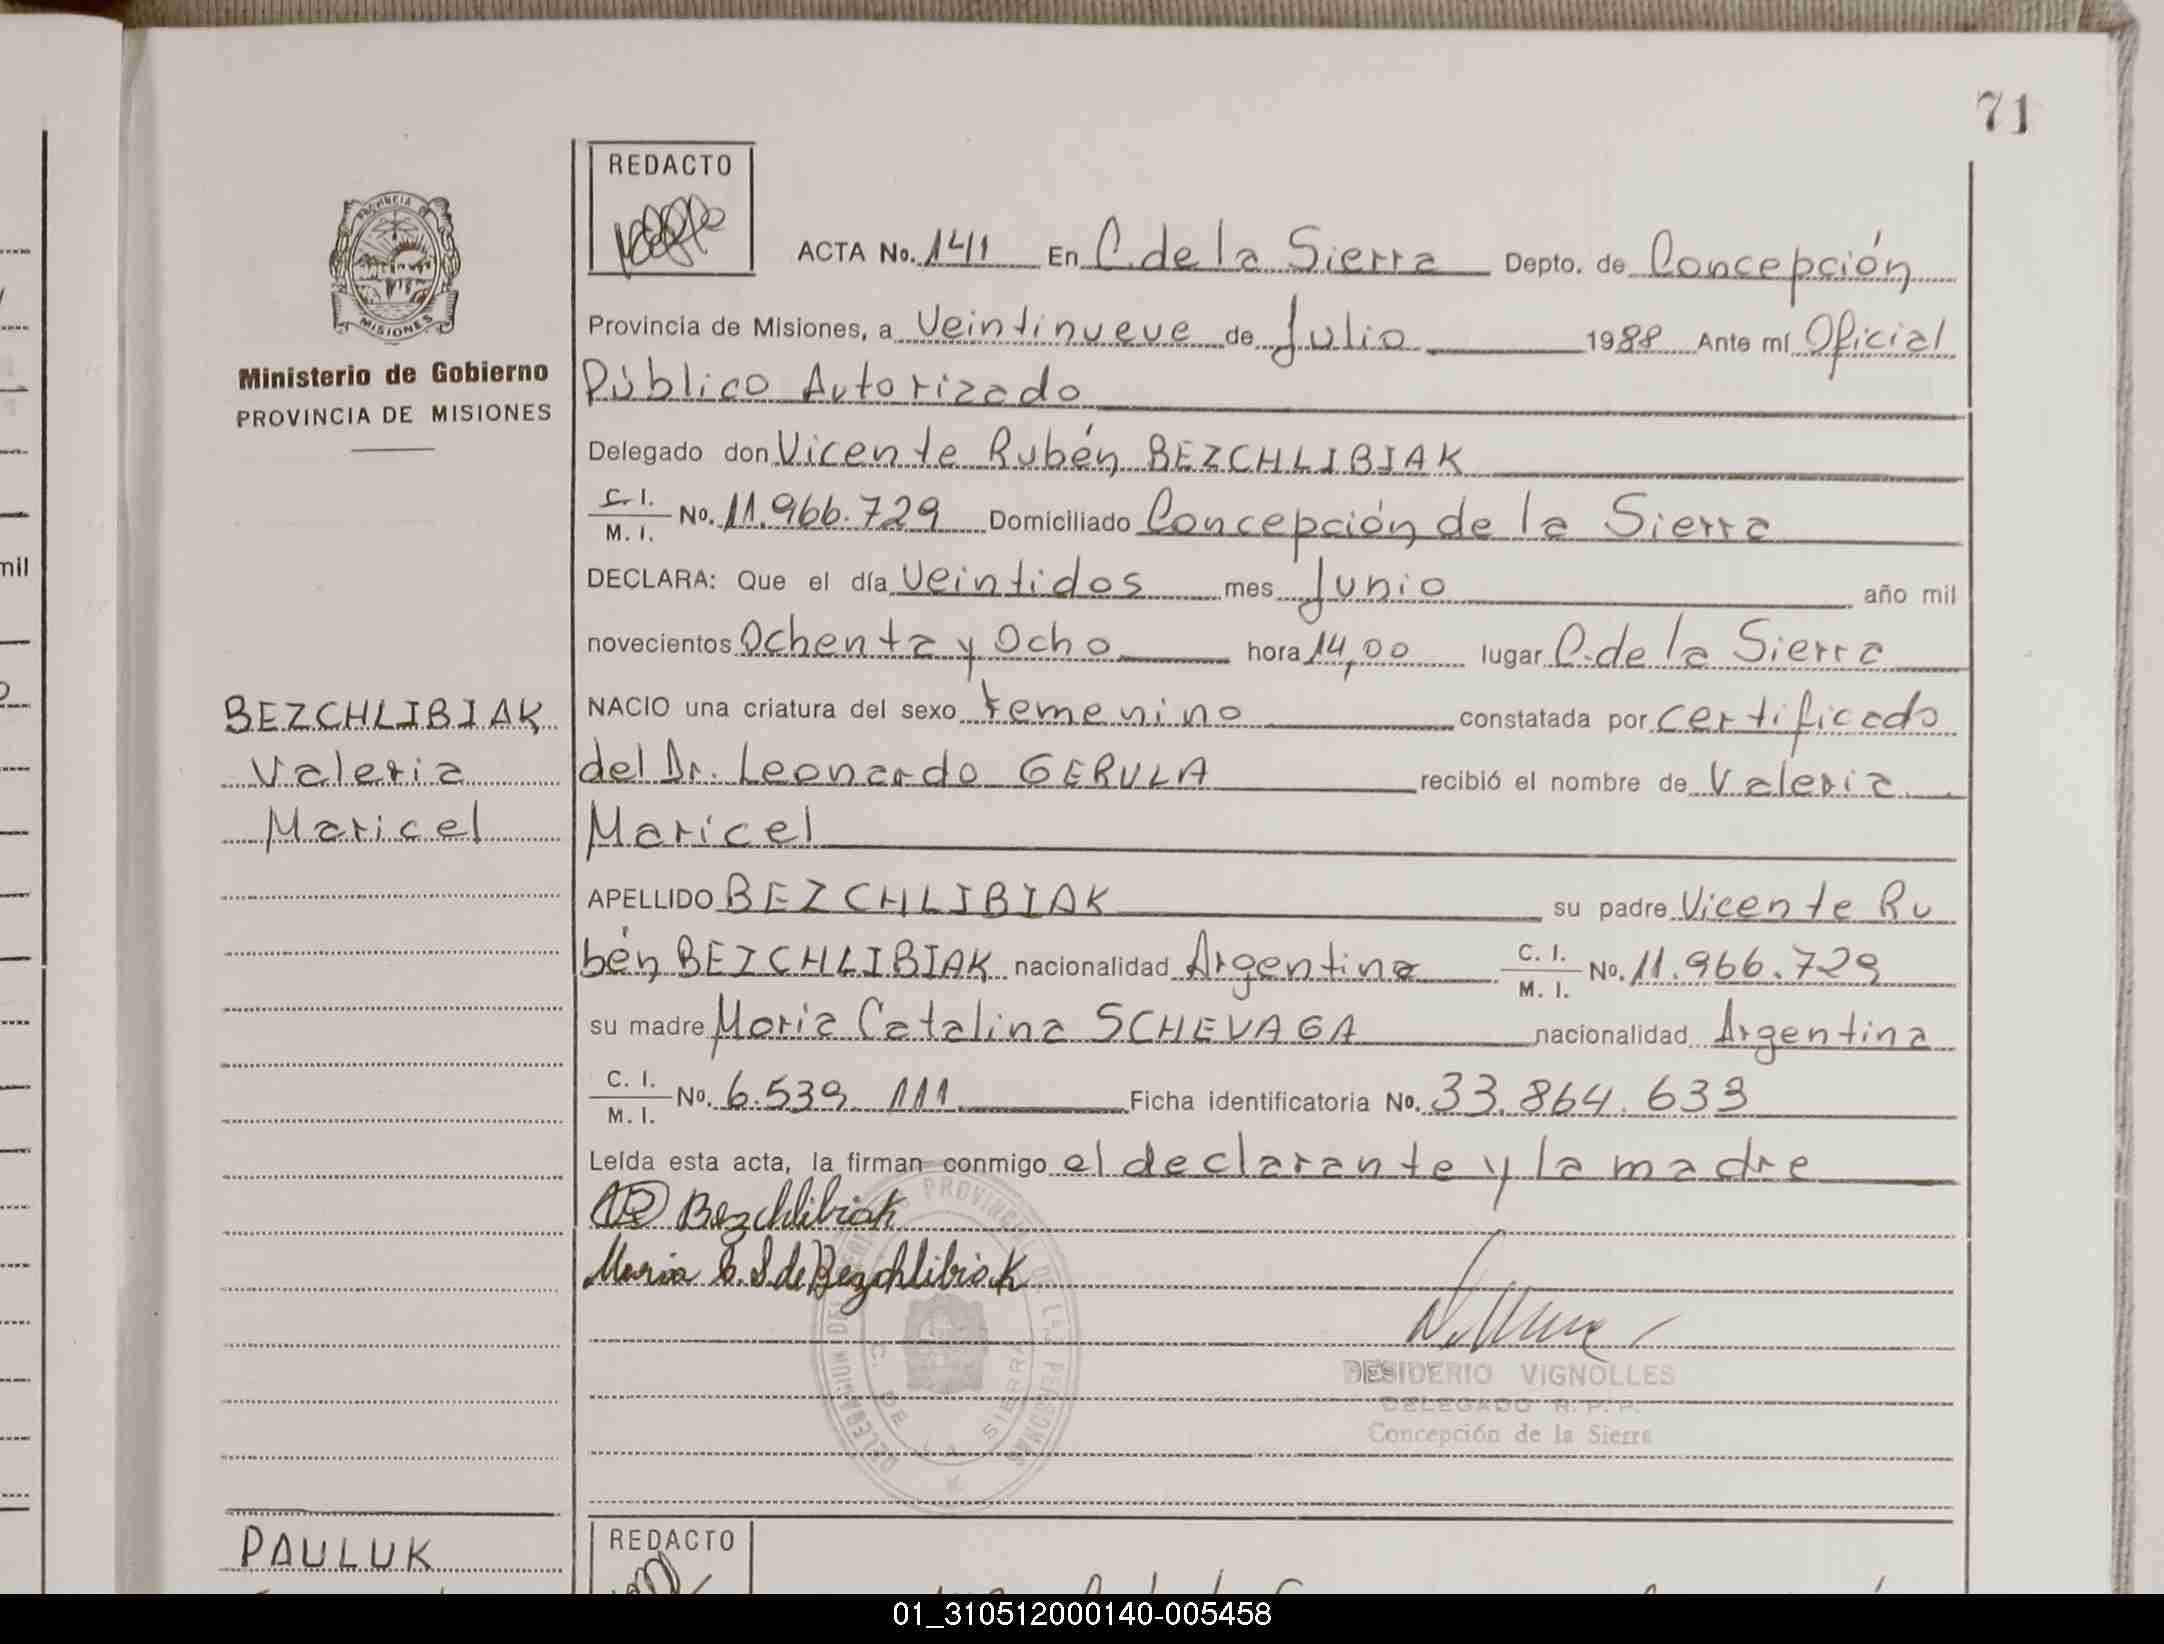 71
REDACTO
ACTA No. 141 En C. de la Sierra Depto. de Concepción
Provincia de Misiones, a Veintinueve de Julio 1988 Ante mí Oficial
Público Autorizado
Ministerio de Gobierno
PROVINCIA DE MISIONES
Delegado don Vicente Rubén BEZCHLIBIAK
C. I.
M. I. No. 11.966.729 Domiciliado Concepción de la Sierra
DECLARA: Que el día Veintidos mes Junio año mil
novecientos Ochenta y Ocho hora 14,00 lugar C. de la Sierra
NACIO una criatura del sexo femenino constatada por certificado
del Dr. Leonardo GERULA recibió el nombre de Valeria
Maricel
BEZCHLIBIAK
Valeria
Maricel
APELLIDO BEZCHLIBIAK su padre Vicente Ru
bén BEZCHLIBIAK nacionalidad Argentina C. I. M. I. No. 11.966.729
su madre María Catalina SCHEVAGA nacionalidad Argentina
C. I.
M. I. No. 6.539.111 Ficha identificatoria No. 33.864.633
Leída esta acta, la firman conmigo el declarante y la madre
Bezchlibiak
Maria C. S. de Bezchlibiak
DESIDERIO VIGNOLLES
DELEGADO R. P. P.
Concepción de la Sierra
C. DE LA SIERRA
PAULUK
REDACTO
01_310512000140-005458